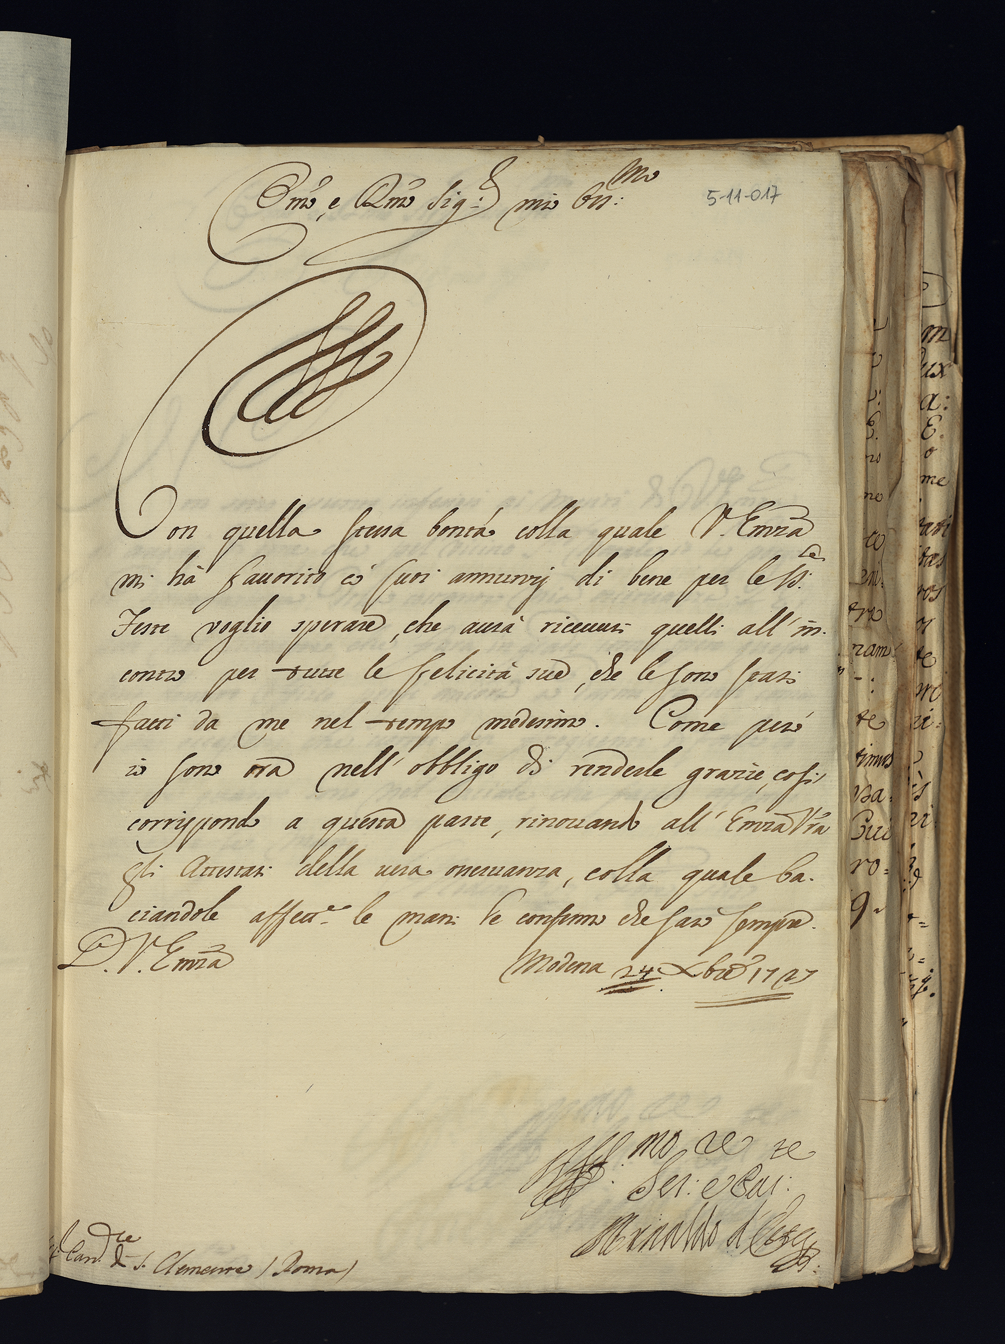 Em̃o, e Rm̃o Sig:r mio Oss:mo
5-11-017
Con quella stessa bontà colla quale V. Emza
mi hà favorito co' suoi annunzij di bene per le Ss:te
Feste voglio sperare, che avrà ricevuti quelli all' in-
contro per tutte le felicità sue, che le sono stati
fatti da me nel tempo medesimo. Come però
io sono ora nell' obbligo di renderle grazie, così
corrispondo a questa parte, rinovando all' Emza Vr̃a
gli attestati della vera osservanza, colla quale ba-
ciandole affett.te le mani le confermo che sarò sempre.
Di V. Emza
Modena 24 Xbre 1727
Aff:mo
Ser: e Cug:
Rinaldo d'Este
Card. di S. Clemente (Roma)